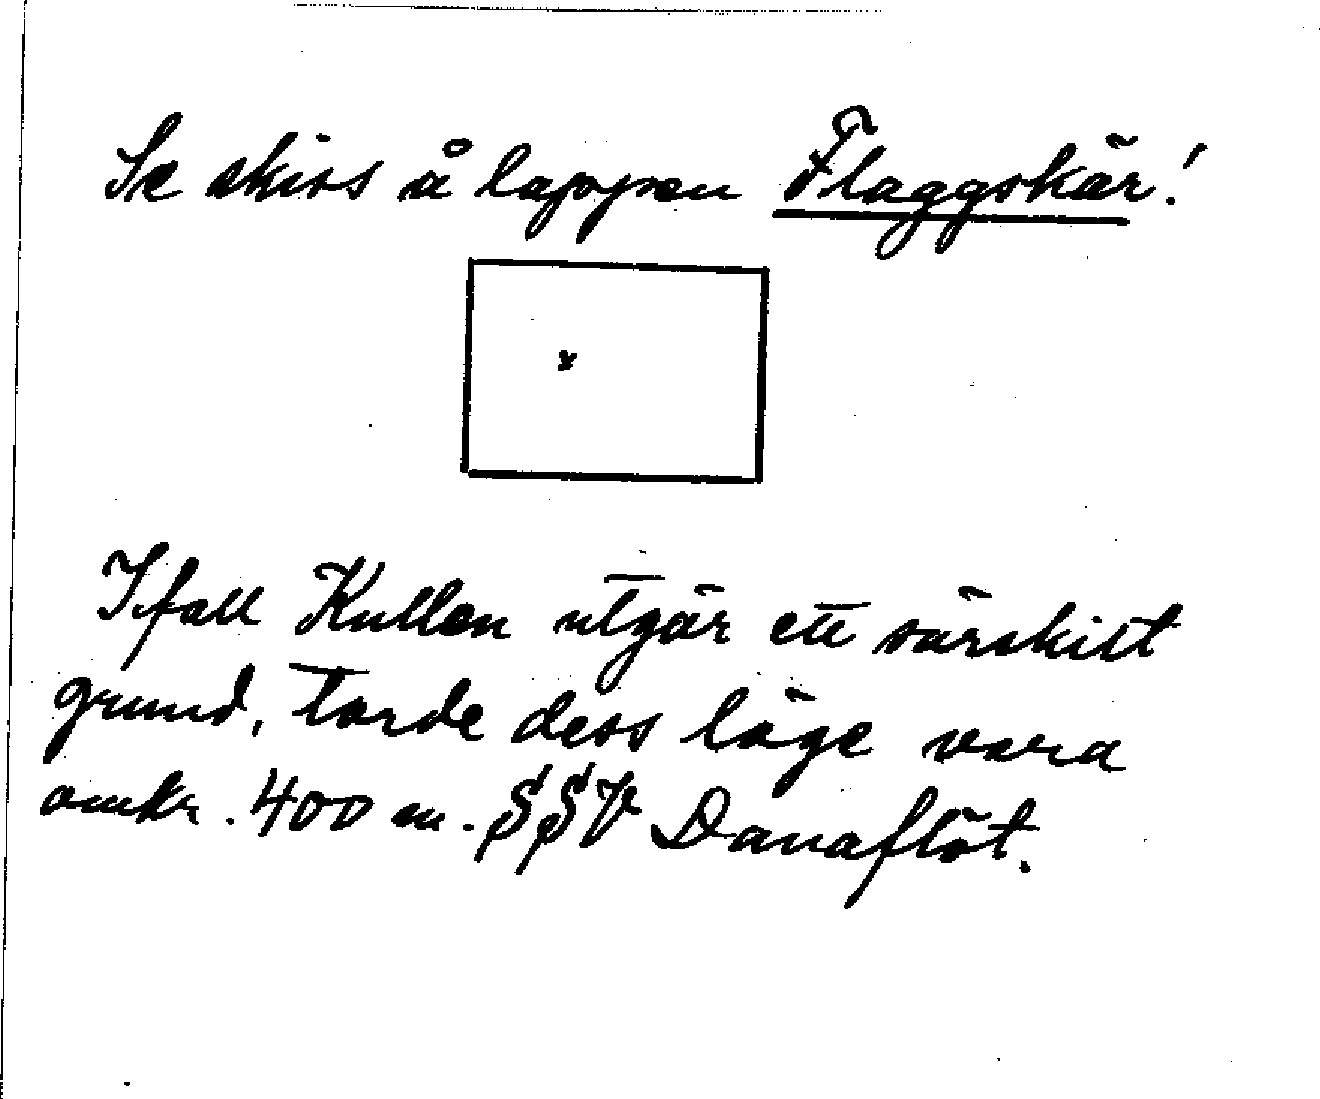 Se skiss å lappen Flaggskär!
x
Ifall Kullen utgör ett särskilt
grund, torde dess läge vara
omkr. 400 m. SSV Danaflöt.